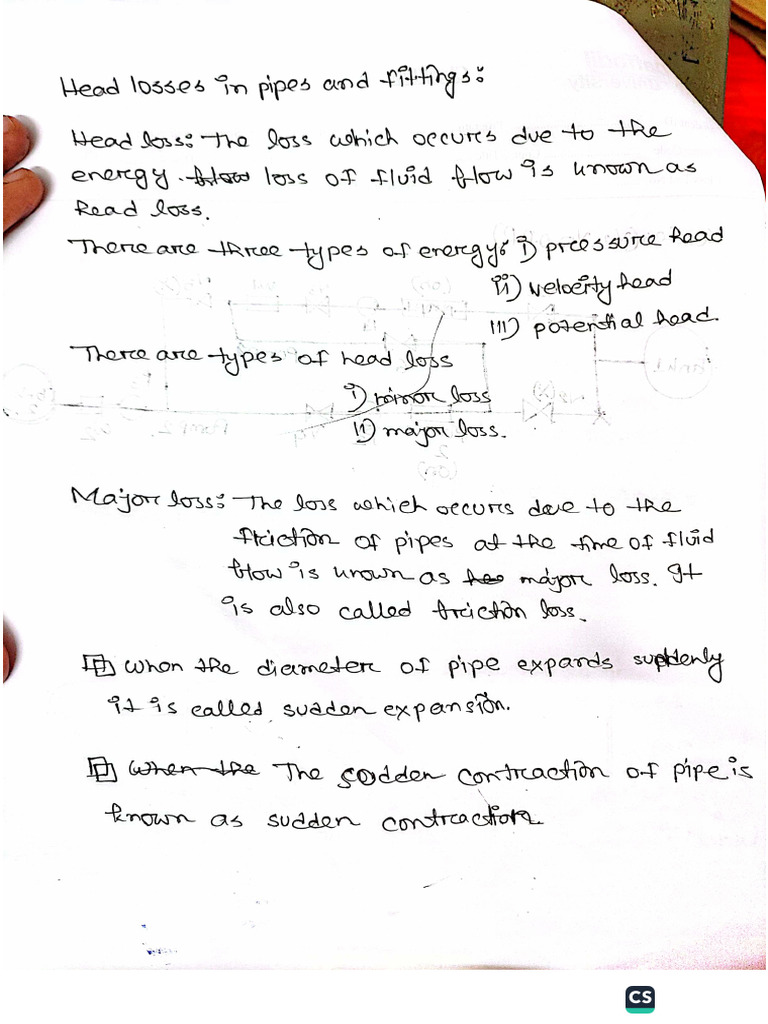 Head losses in pipes and fittings:
Head loss: The loss which occures due to the
energy flow loss of fluid flow is known as
head loss.
There are three types of energy: i) pressure head
ii) velocity head
iii) potential head.
There are types of head loss
i) minor loss
ii) major loss.
Major loss: The loss which occurs due to the
friction of pipes at the time of fluid
flow is known as major loss. It
is also called friction loss.
When the diameter of pipe expands suddenly
it is called sudden expansion.
When the The sudden contraction of pipe is
known as sudden contraction.
CS